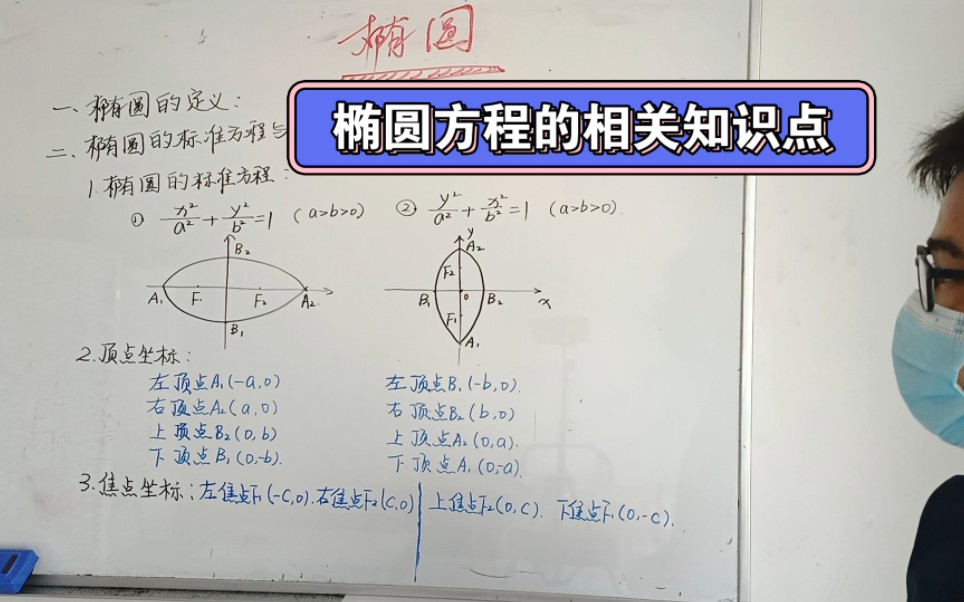 椭圆
椭圆方程的相关知识点
一、椭圆的定义:
二、椭圆的标准方程与
1.椭圆的标准方程:
① x²/a² + y²/b² = 1 (a>b>0) ② y²/a² + x²/b² = 1 (a>b>0).
B₂ y A₂
F₂
A₁ F₁ F₂ A₂. B₁ 0 B₂ x
F₁
B₁ A₁
2.顶点坐标:
左顶点A₁(-a,0) 左顶点B₁(-b,0).
右顶点A₂(a,0) 右顶点B₂(b,0)
上顶点B₂(0,b) 上顶点A₂(0,a).
下顶点B₁(0,-b). 下顶点A₁(0,-a).
3.焦点坐标:左焦点F₁(-c,0).右焦点F₂(c,0) 上焦点F₂(0,c). 下焦点F₁(0,-c).